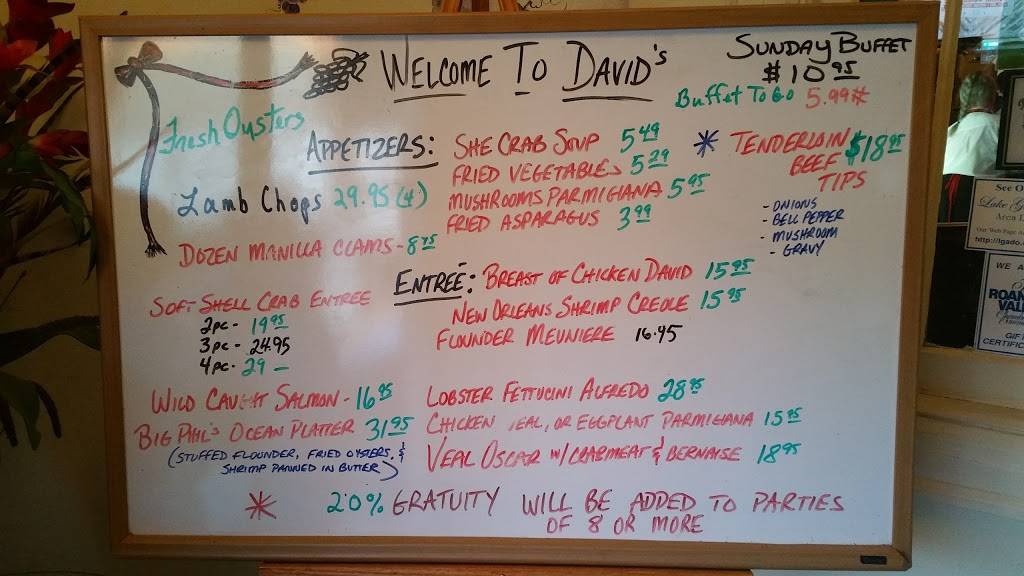 WELCOME TO DAVID'S
SUNDAY BUFFET
$10.95
Buffet To Go 5.99#
Fresh Oysters
APPETIZERS:
SHE CRAB SOUP 5.49
FRIED VEGETABLES 5.29
MUSHROOMS PARMIGIANA 5.95
FRIED ASPARAGUS 3.99
* TENDERLOIN $18.95
BEEF
TIPS
- ONIONS
- BELL PEPPER
- MUSHROOM
- GRAVY
Lamb Chops 29.95 (4)
DOZEN MANILLA CLAMS - 8.75
ENTREÉ: BREAST OF CHICKEN DAVID 15.95
NEW ORLEANS SHRIMP CREOLE 15.95
FLOUNDER MEUNIERE 16.95
SOFT SHELL CRAB ENTREE
2pc - 19.95
3pc - 24.95
4pc - 29 -
WILD CAUGHT SALMON - 16.95
BIG PHIL'S OCEAN PLATTER 31.95
(STUFFED FLOUNDER, FRIED OYSTERS, &
SHRIMP PANNED IN BUTTER)
LOBSTER FETTUCINI ALFREDO 28.95
CHICKEN, EAL, OR EGGPLANT PARMIGIANA 15.95
VEAL OSCAR W/ CRABMEAT & BERNAISE 18.95
* 20% GRATUITY WILL BE ADDED TO PARTIES
OF 8 OR MORE
See O
Lake G
Area
Our Web Page
http://lgado.
WE A
ROAN
VAL
GIF
CERTIFIC